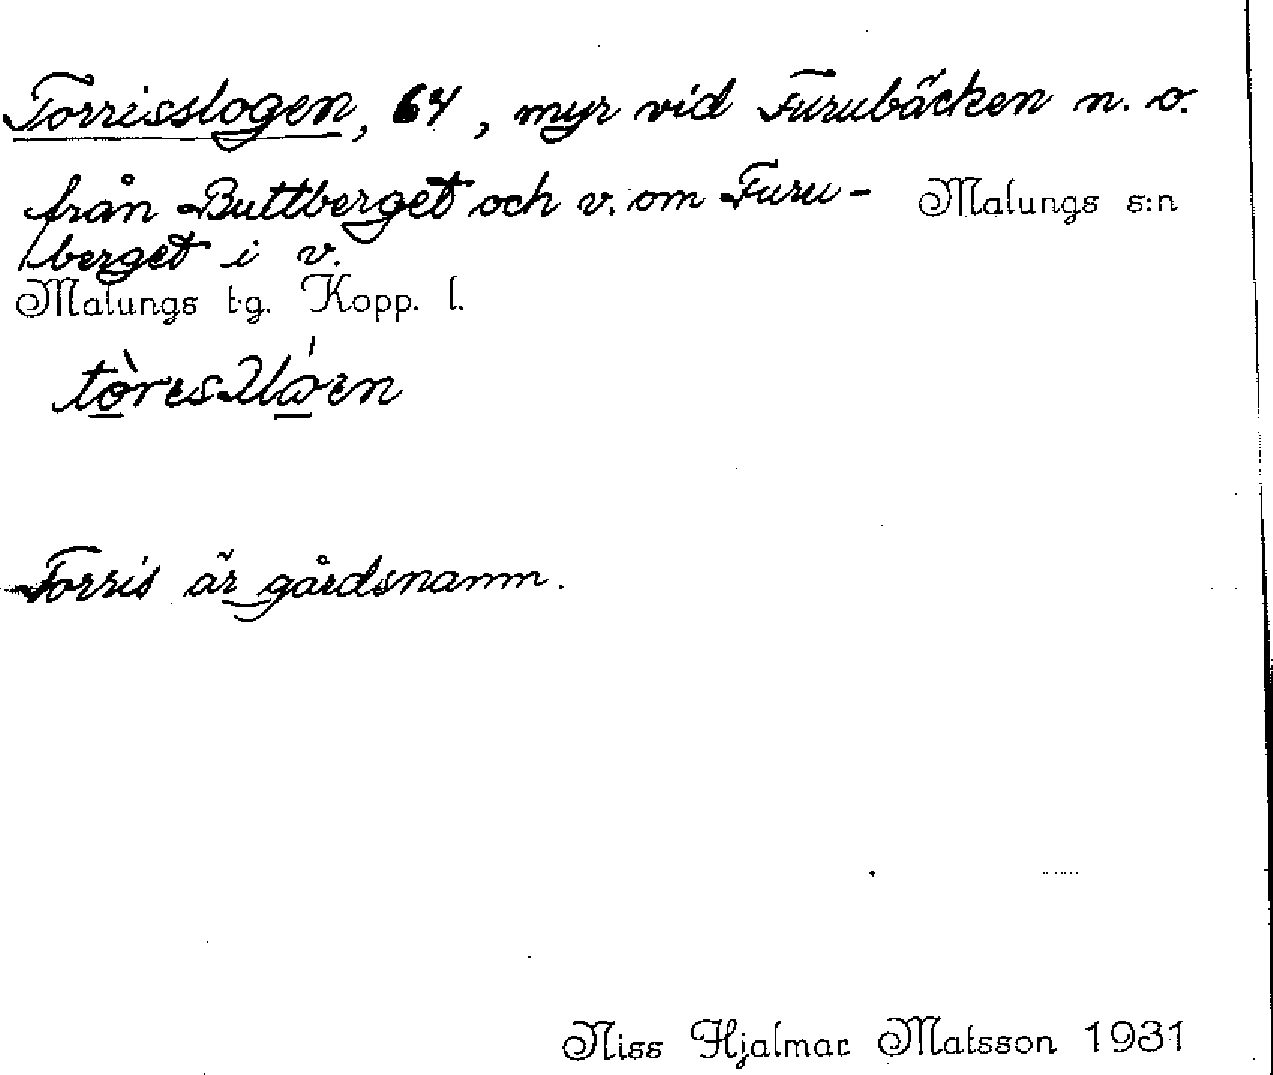 Torrisslogen, 64, myr vid Furubäcken n. o.
från Buttberget och v. om Furu-
Malungs s:n
berget i v.
Malungs tg. Kopp. l.
Torris är gårdsnamn.
Niss Hjalmar Matsson 1931